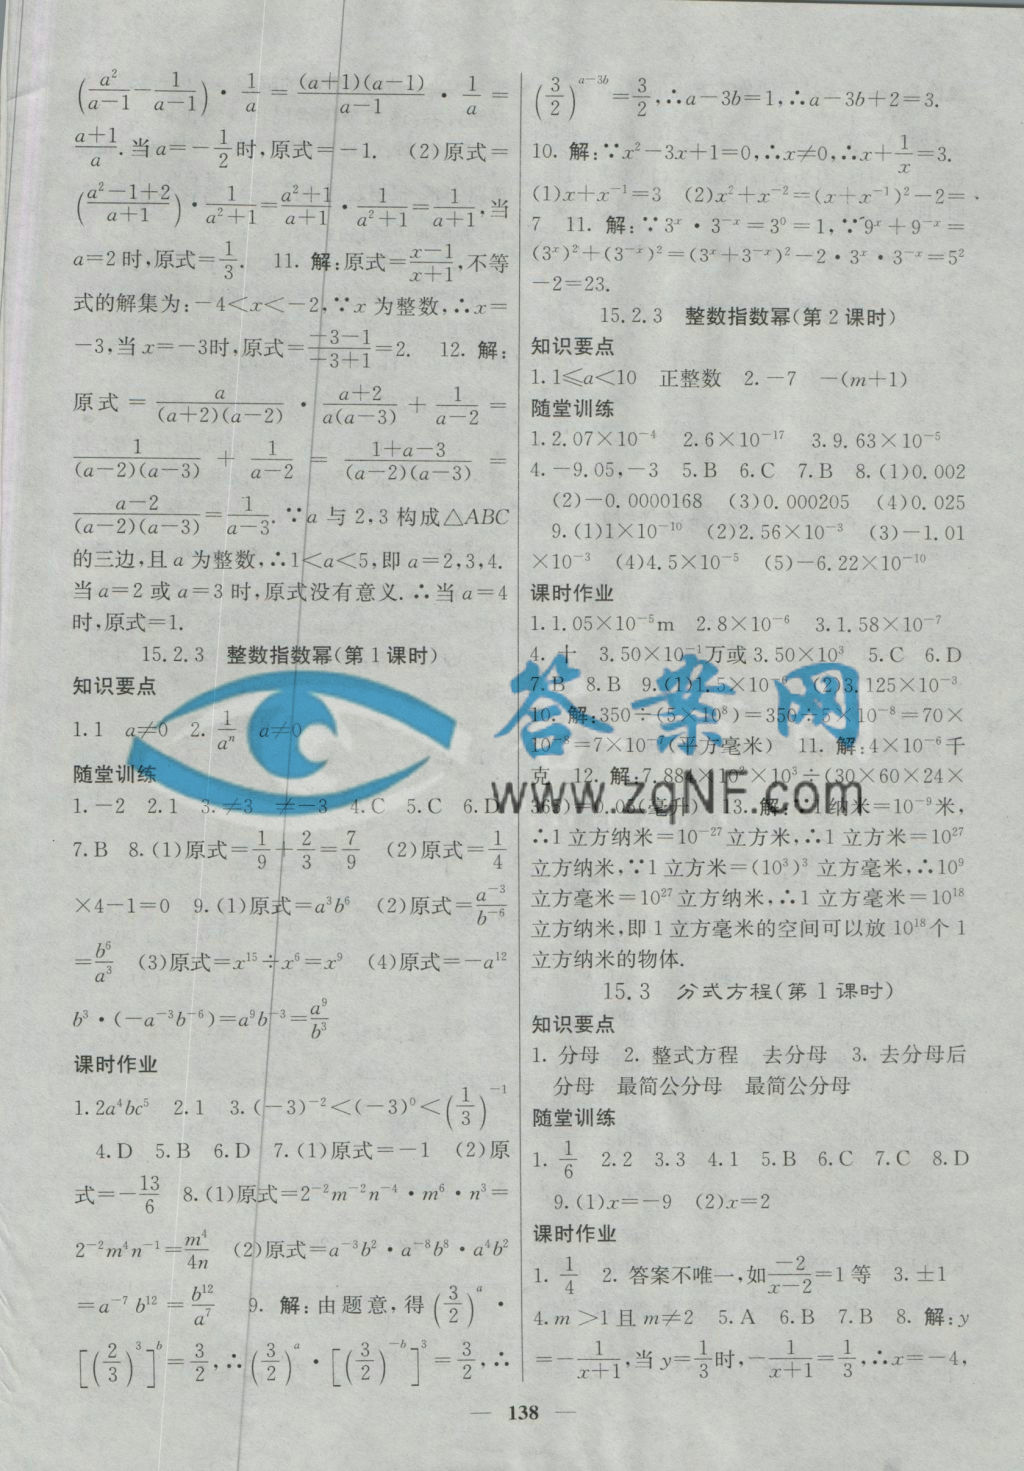 (a²/(a-1) - 1/(a-1))·1/a=(a+1)(a-1)/(a-1)·1/a=
(a+1)/a.当a=-1/2时,原式=-1. (2)原式=
((a²-1+2)/(a+1))·1/(a²+1)=(a²+1)/(a+1)·1/(a²+1)=1/(a+1),当
a=2时,原式=1/3. 11. 解:原式=(x-1)/(x+1),不等
式的解集为:-4<x<-2,∵x为整数,∴x=
-3,当x=-3时,原式=(-3-1)/(-3+1)=2. 12. 解:
原式=a/((a+2)(a-2))·(a+2)/(a(a-3))+1/(a-2)=
1/((a-2)(a-3))+1/(a-2)=(1+a-3)/((a-2)(a-3))=
(a-2)/((a-2)(a-3))=1/(a-3).∵a与2,3构成△ABC
的三边,且a为整数,∴1<a<5,即a=2,3,4.
当a=2或a=3时,原式没有意义.∴当a=4
时,原式=1.
15.2.3 整数指数幂(第1课时)
知识要点
1.1 a≠0 2. 1/aⁿ a≠0
随堂训练
1.-2 2.1 3.≠3 ≠-3 4.C 5.C 6.D
7.B 8.(1)原式=1/9+2/3=7/9 (2)原式=1/4
×4-1=0 9.(1)原式=a³b⁶ (2)原式=a⁻³/b⁻⁶
=b⁶/a³ (3)原式=x¹⁵÷x⁶=x⁹ (4)原式=-a¹²
b³·(-a⁻³b⁻⁶)=a⁹b⁻³=a⁹/b³
课时作业
1.2a⁴bc⁵ 2.1 3.(-3)⁻²<(-3)⁰<(1/3)⁻¹
4.D 5.B 6.D 7.(1)原式=-1 (2)原
式=-13/6 8.(1)原式=2⁻²m⁻²n⁻⁴·m⁶·n³=
2⁻²m⁴n⁻¹=m⁴/4n (2)原式=a⁻³b²·a⁻⁸b⁸·a⁴b²
=a⁻⁷b¹²=b¹²/a⁷ 9. 解:由题意,得(3/2)ᵃ·
[(2/3)³]ᵇ=3/2,∴(3/2)ᵃ·[(3/2)⁻ᵇ]³=3/2,∴
(3/2)ᵃ⁻³ᵇ=3/2,∴a-3b=1,∴a-3b+2=3.
10. 解:∵x²-3x+1=0,∴x≠0,∴x+1/x=3.
(1)x+x⁻¹=3 (2)x²+x⁻²=(x+x⁻¹)²-2=
7 11. 解:∵3ˣ·3⁻ˣ=3⁰=1,∵9ˣ+9⁻ˣ=
(3ˣ)²+(3⁻ˣ)²=(3ˣ+3⁻ˣ)²-2·3ˣ·3⁻ˣ=5²
-2=23.
15.2.3 整数指数幂(第2课时)
知识要点
1.1≤a<10 正整数 2.-7 -(m+1)
随堂训练
1.2.07×10⁻⁴ 2.6×10⁻¹⁷ 3.9.63×10⁻⁵
4.-9.05,-3 5.B 6.C 7.B 8.(1)0.002
(2)-0.0000168 (3)0.000205 (4)0.025
9.(1)1×10⁻¹⁰ (2)2.56×10⁻³ (3)-1.01
×10⁻³ (4)4.5×10⁻⁵ (5)-6.22×10⁻¹⁰
课时作业
1.1.05×10⁻⁵m 2.8×10⁻⁶ 3.1.58×10⁻⁷
4. 十 3.50×10⁻¹万或3.50×10³ 5.C 6.D
7.B 8.B 9.(1)1.5×10 (2)3.125×10⁻³
10. 解:350÷(5×10⁸)=350÷5×10⁻⁸=70×
10⁻⁸=7×10⁻⁷(平方毫米) 11. 解:4×10⁻⁶千
克 12. 解:7.88×10²×10³÷(30×60×24×
365)=0.05(毫升) 13. 解:∵1纳米=10⁻⁹米,
∴1立方纳米=10⁻²⁷立方米,∴1立方米=10²⁷
立方纳米,∵1立方米=(10³)³立方毫米,∴10⁹
立方毫米=10²⁷立方纳米,∴1立方毫米=10¹⁸
立方纳米,即1立方毫米的空间可以放10¹⁸个1
立方纳米的物体.
15.3 分式方程(第1课时)
知识要点
1. 分母 2. 整式方程 去分母 3. 去分母后
分母 最简公分母 最简公分母
随堂训练
1. 1/6 2.2 3.3 4.1 5.B 6.C 7.C 8.D
9.(1)x=-9 (2)x=2
课时作业
1. 1/4 2. 答案不唯一,如-2/(x-2)=1等 3.±1
4.m>1且m≠2 5.A 6.B 7.B 8. 解:y
=-1/(x+1),当y=1/3时,-1/(x+1)=1/3,∴x=-4,
— 138 —
答案网
www.zqNF.com